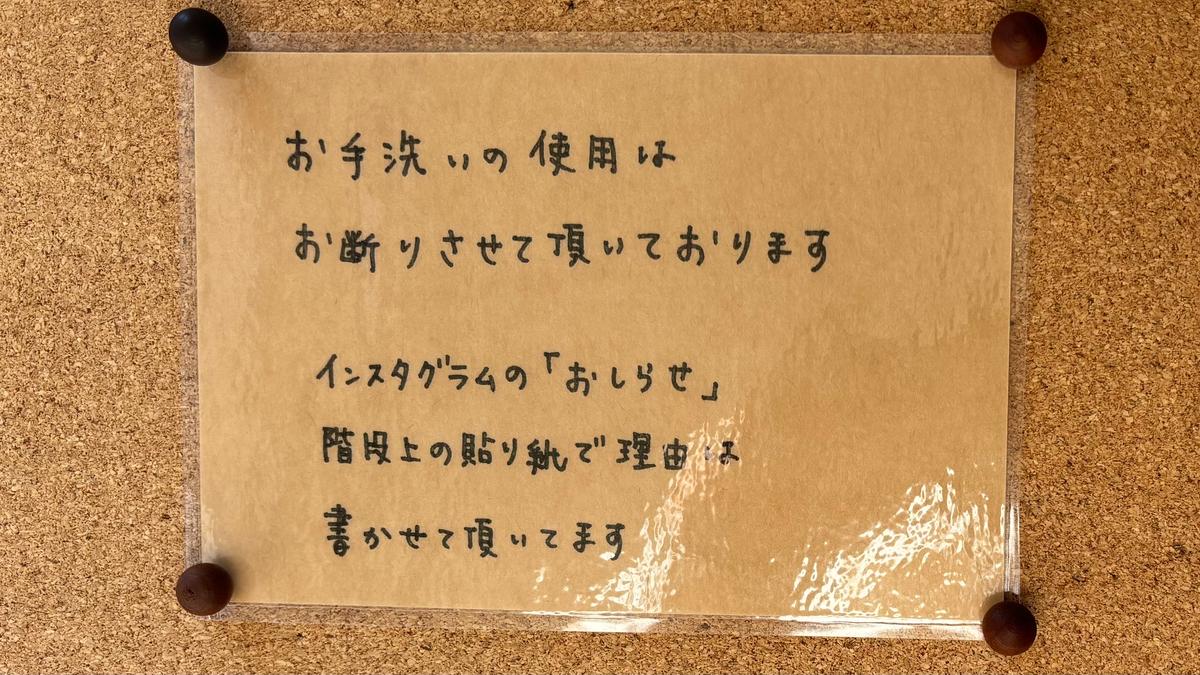 お手洗いの使用は
お断りさせて頂いております
インスタグラムの「おしらせ」
階段上の貼り紙で理由は
書かせて頂いてます